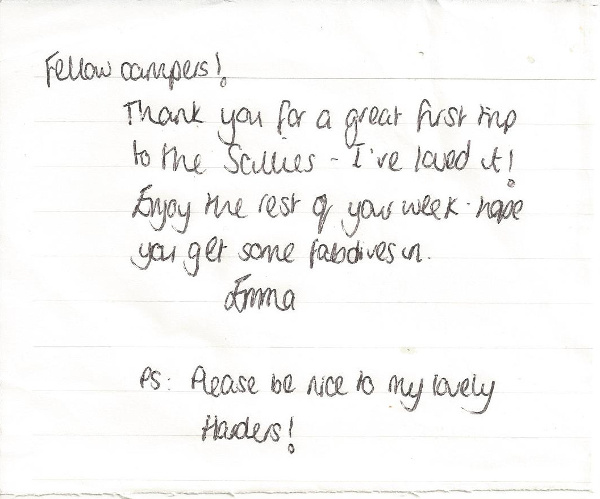 Fellow campers!
Thank you for a great first trip
to the Scillies - I've loved it!
Enjoy the rest of your week - hope
you get some fab dives in.
Emma
PS: Please be nice to my lovely
Harders!